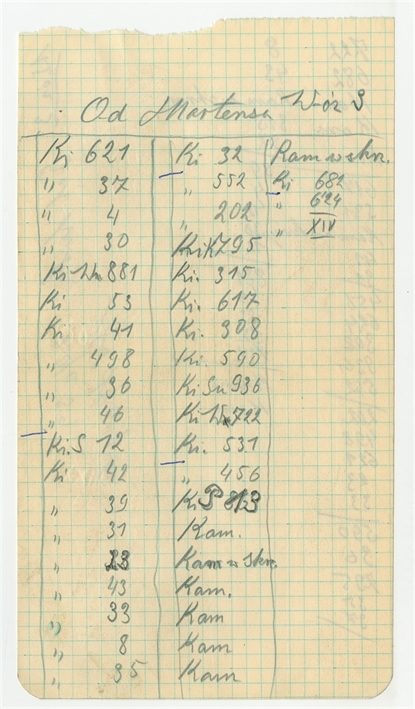 Od Martensa Wiór 3
Ki 621
" 37
" 4
" 30
Ki Wn 881
Ki 53
Ki 41
" 498
" 36
" 46
Ki.S 12
Ki 42
" 39
" 31
" 23
" 43
" 33
" 8
" 35
Ki 32
" 552
" 202
KriK 795
Ki. 315
Ki. 617
Ki. 308
Ki. 590
Ki Sn 936
Ki Wn 722
Ki. 531
" 456
Ki P 813
Kam.
Kam w skrz.
Kam.
Kam
Kam
Kam
Kam w skrz.
Ki 682
" 624
" XIV